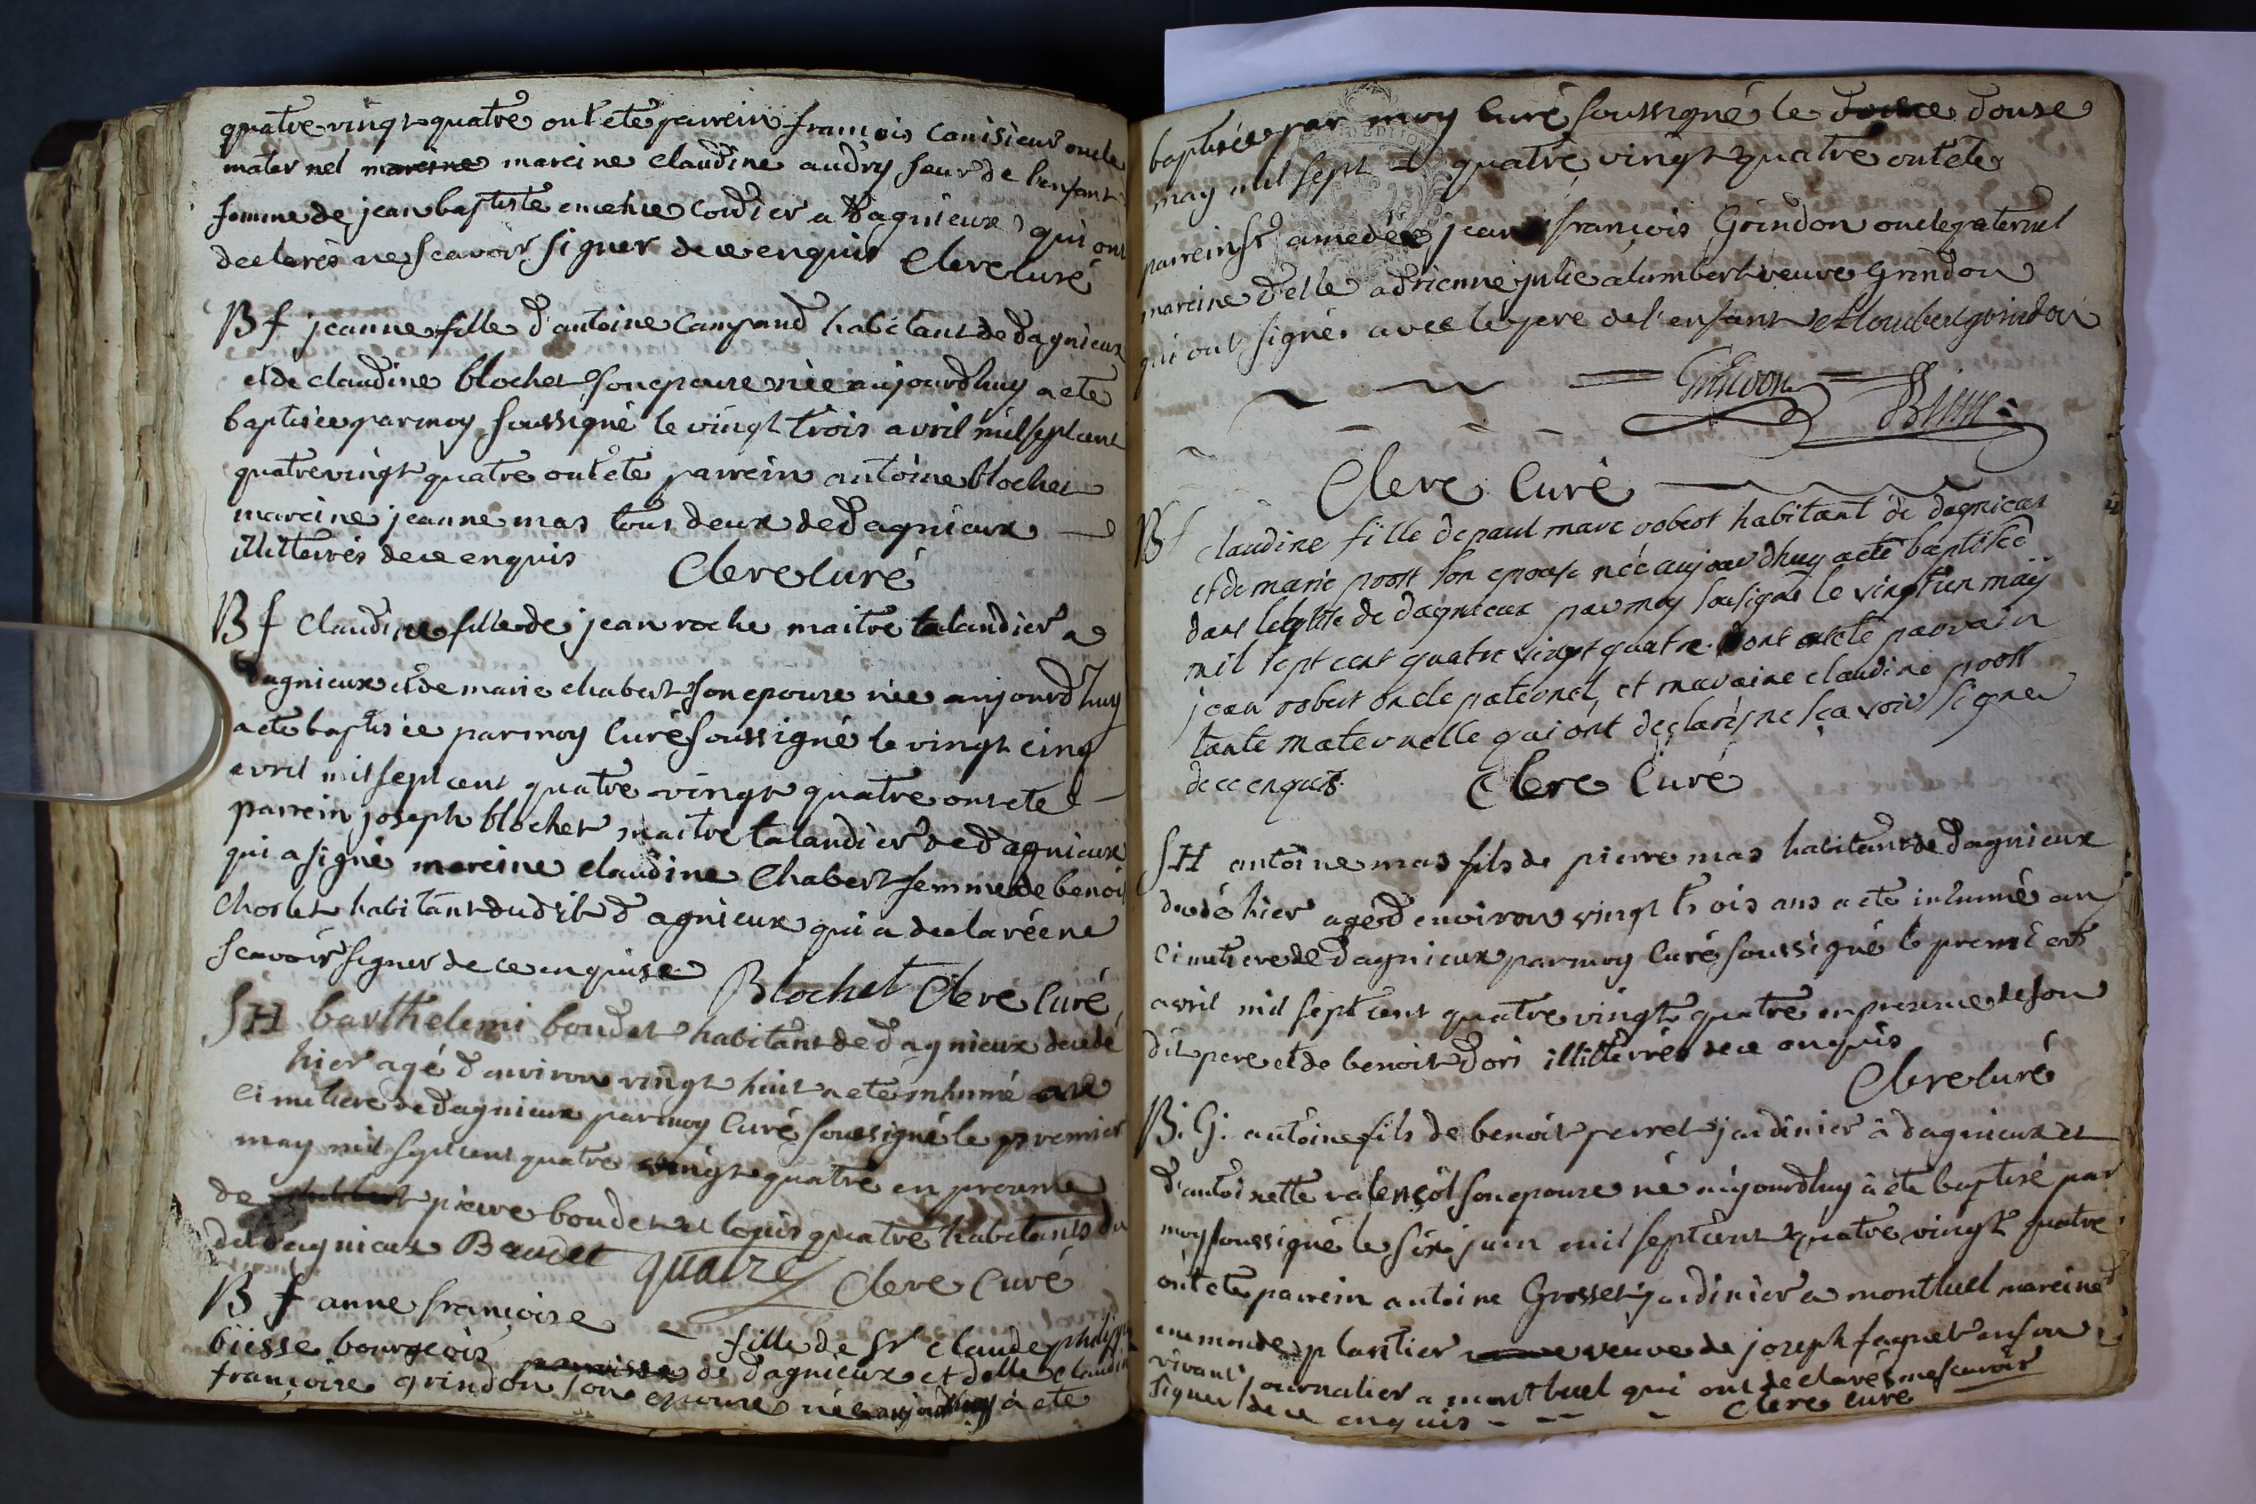 quatre vingt quatre ont ete parrein françois canisieur oncle
maternel mareine mareine claudine audry seur de l'enfant
femme de jean baptiste cordier a Dagnieux qui ont
declarés ne scavoir signer de ce enquis Clere Curé
B f jeanne fille d'antoine Campand habitant de dagnieux
et de claudine blochet son epouse née aujourdhuy a ete
baptisée par moy soussigné le vingt trois avril mil sept cent
quatre vingt quatre ont ete parrein antoine blochet
mareine jeanne mas tous deux de dagnieux
illiterrés de ce enquis Clere Curé
B f Claudine fille de jean roche maitre talandier a
dagnieux et de marie chabert son epouse née aujourdhuy
a ete baptisée par moy Curé soussigné le vingt cinq
avril mil sept cent quatre vingt quatre ont ete
parrein joseph blochet maitre talandier de dagnieux
qui a signé mareine claudine Chabert femme de benoit
Choslet habitant dudit dagnieux qui a declaréene
scavoir signer de ce enquise Blochet Clere Curé
SH barthelemi boudet habitant de dagnieux decedé
hier agé d'environ vingt huit a ete inhumé au
cimetiere de dagnieux par moy Curé soussigné le premier
may mil sept cent quatre vingt quatre en presence
de pierre boudet et louis quatre habitants du
dit dagnieux Baudet quatre Clere Curé
B f anne françoise
fille de Sr claude philippe
biesse bourgeois paroisse de dagnieux et delle claudine
françoise grindon son epouse née aujourdhuy a ete
baptisée par moy Curé soussigné le douze douse
may mil sept quatre vingt quatre ont ete
parrein sr amedée jean françois Grindon oncle paternel
mareine delle adrienne julie alumbert veuve Grindon
qui ont signé avec le pere de l'enfant alombert grindon
Grindon
Clere Curé
B f Claudine fille de paul marc robert habitant de dagnieux
et de marie poott son epouse née aujourdhuy a eté baptisée
dans leglise de dagnieux par moy sousigné le vingt un maÿ
mil sept cent quatre vingt quatre. dont on ete parvain
jean robert oncle paternel, et mavaine claudine poott
tante maternelle qui ont declarés ne sçavoir signer
de ce enquis. Clere Curé
SH antoine mas fils de pierre mas habitant de dagnieux
decedé hier agé d'environ vingt trois ans a ete inhumé au
cimetiere de dagnieux par moy Curé soussigné le premier
avril mil sept cent quatre vingt quatre en presence de son
dit pere et de benoit dori illiterrés de ce enquis
Clere Curé
B. G. antoine fils de benoit perret jardinier à dagnieux et
d'antoinette valençot son epouse né aujourdhuy à ete baptisé par
moy soussigné le six juin mil sept cent quatre vingt quatre
ont ete parrein antoine Grosset jardinier a montluel mareine
enemonde plantier veuve de joseph faguet en son
vivant journalier a montluel qui ont declarés ne scavoir
signer de ce enquis Clere Curé